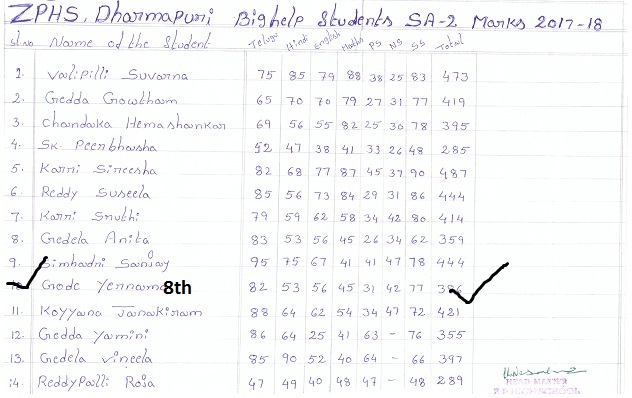 ZPHS, Dharmapuri Bighelp Students SA-2 Marks 2017-18
Sl.no Name of the Student Telugu Hindi English Maths PS NS SS Total
1. Valipilli Suvarna 75 85 79 88 38 25 83 473
2. Gedda Gowtham 65 70 70 79 27 31 77 419
3. Chandaka Hemashankar 69 56 55 82 25 30 78 395
4. SK. Peenbhasha 52 47 38 41 33 26 48 285
5. Karri Sireesha 82 68 77 87 45 37 90 487
6. Reddy Suseela 85 56 73 84 29 31 86 444
7. Karri Sruthi 79 59 62 58 34 42 80 414
8. Gedela Anita 83 53 56 45 26 34 62 359
9. Simhadri Sanjay 95 75 67 41 41 47 78 444
10. Gode 8th 82 53 56 45 31 42 77
11. Koyyana Janakiram 88 64 62 54 34 47 72 421
12. Gedda Yamini 86 64 25 41 63 - 76 355
13. Gedela Vineela 85 90 52 40 64 - 66 397
14. ReddyPalli Roja 47 49 40 48 47 - 48 289
HEAD MASTER
Z.P.HIGH SCHOOL